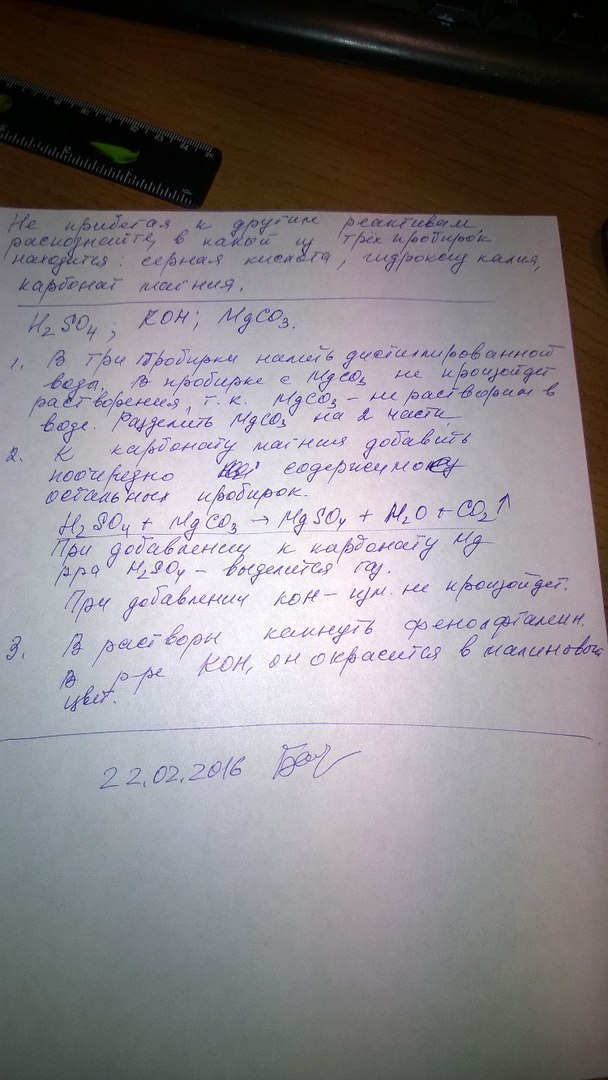 Не прибегая к другим реактивам
распознайте, в какой из трёх пробирок
находится: серная кислота, гидроксид калия,
карбонат магния.
H₂SO₄; KOH; MgCO₃.
1. В три пробирки налить дистиллированной
воды. В пробирке с MgCO₃ не произойдет
растворения, т.к. MgCO₃ – не растворим в
воде. Разделить MgCO₃ на 2 части
2. К карбонату магния добавить
поочерёдно содержимое
остальных пробирок.
H₂SO₄ + MgCO₃ → MgSO₄ + H₂O + CO₂↑
При добавлении к карбонату Mg
р-ра H₂SO₄ – выделится газ.
При добавлении KOH – изм. не произойдет.
3. В растворы капнуть фенолфталеин.
В р-ре KOH, он окрасится в малиновый
цвет.
22.02.2016